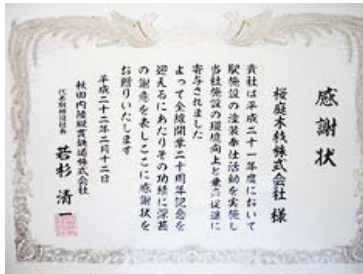 感謝状
桜庭木材株式会社 様
貴社は平成二十一年度において
駅施設の塗装奉仕活動を実施し
当社施設の環境向上と乗客促進に
寄与されました
よって全線開業二十周年記念を
迎えるにあたりその功績に深甚
の謝意を表しここに感謝状を
お贈りいたします
平成二十二年二月十二日
秋田内陸縦貫鉄道株式会社
代表取締役社長 若杉 清一